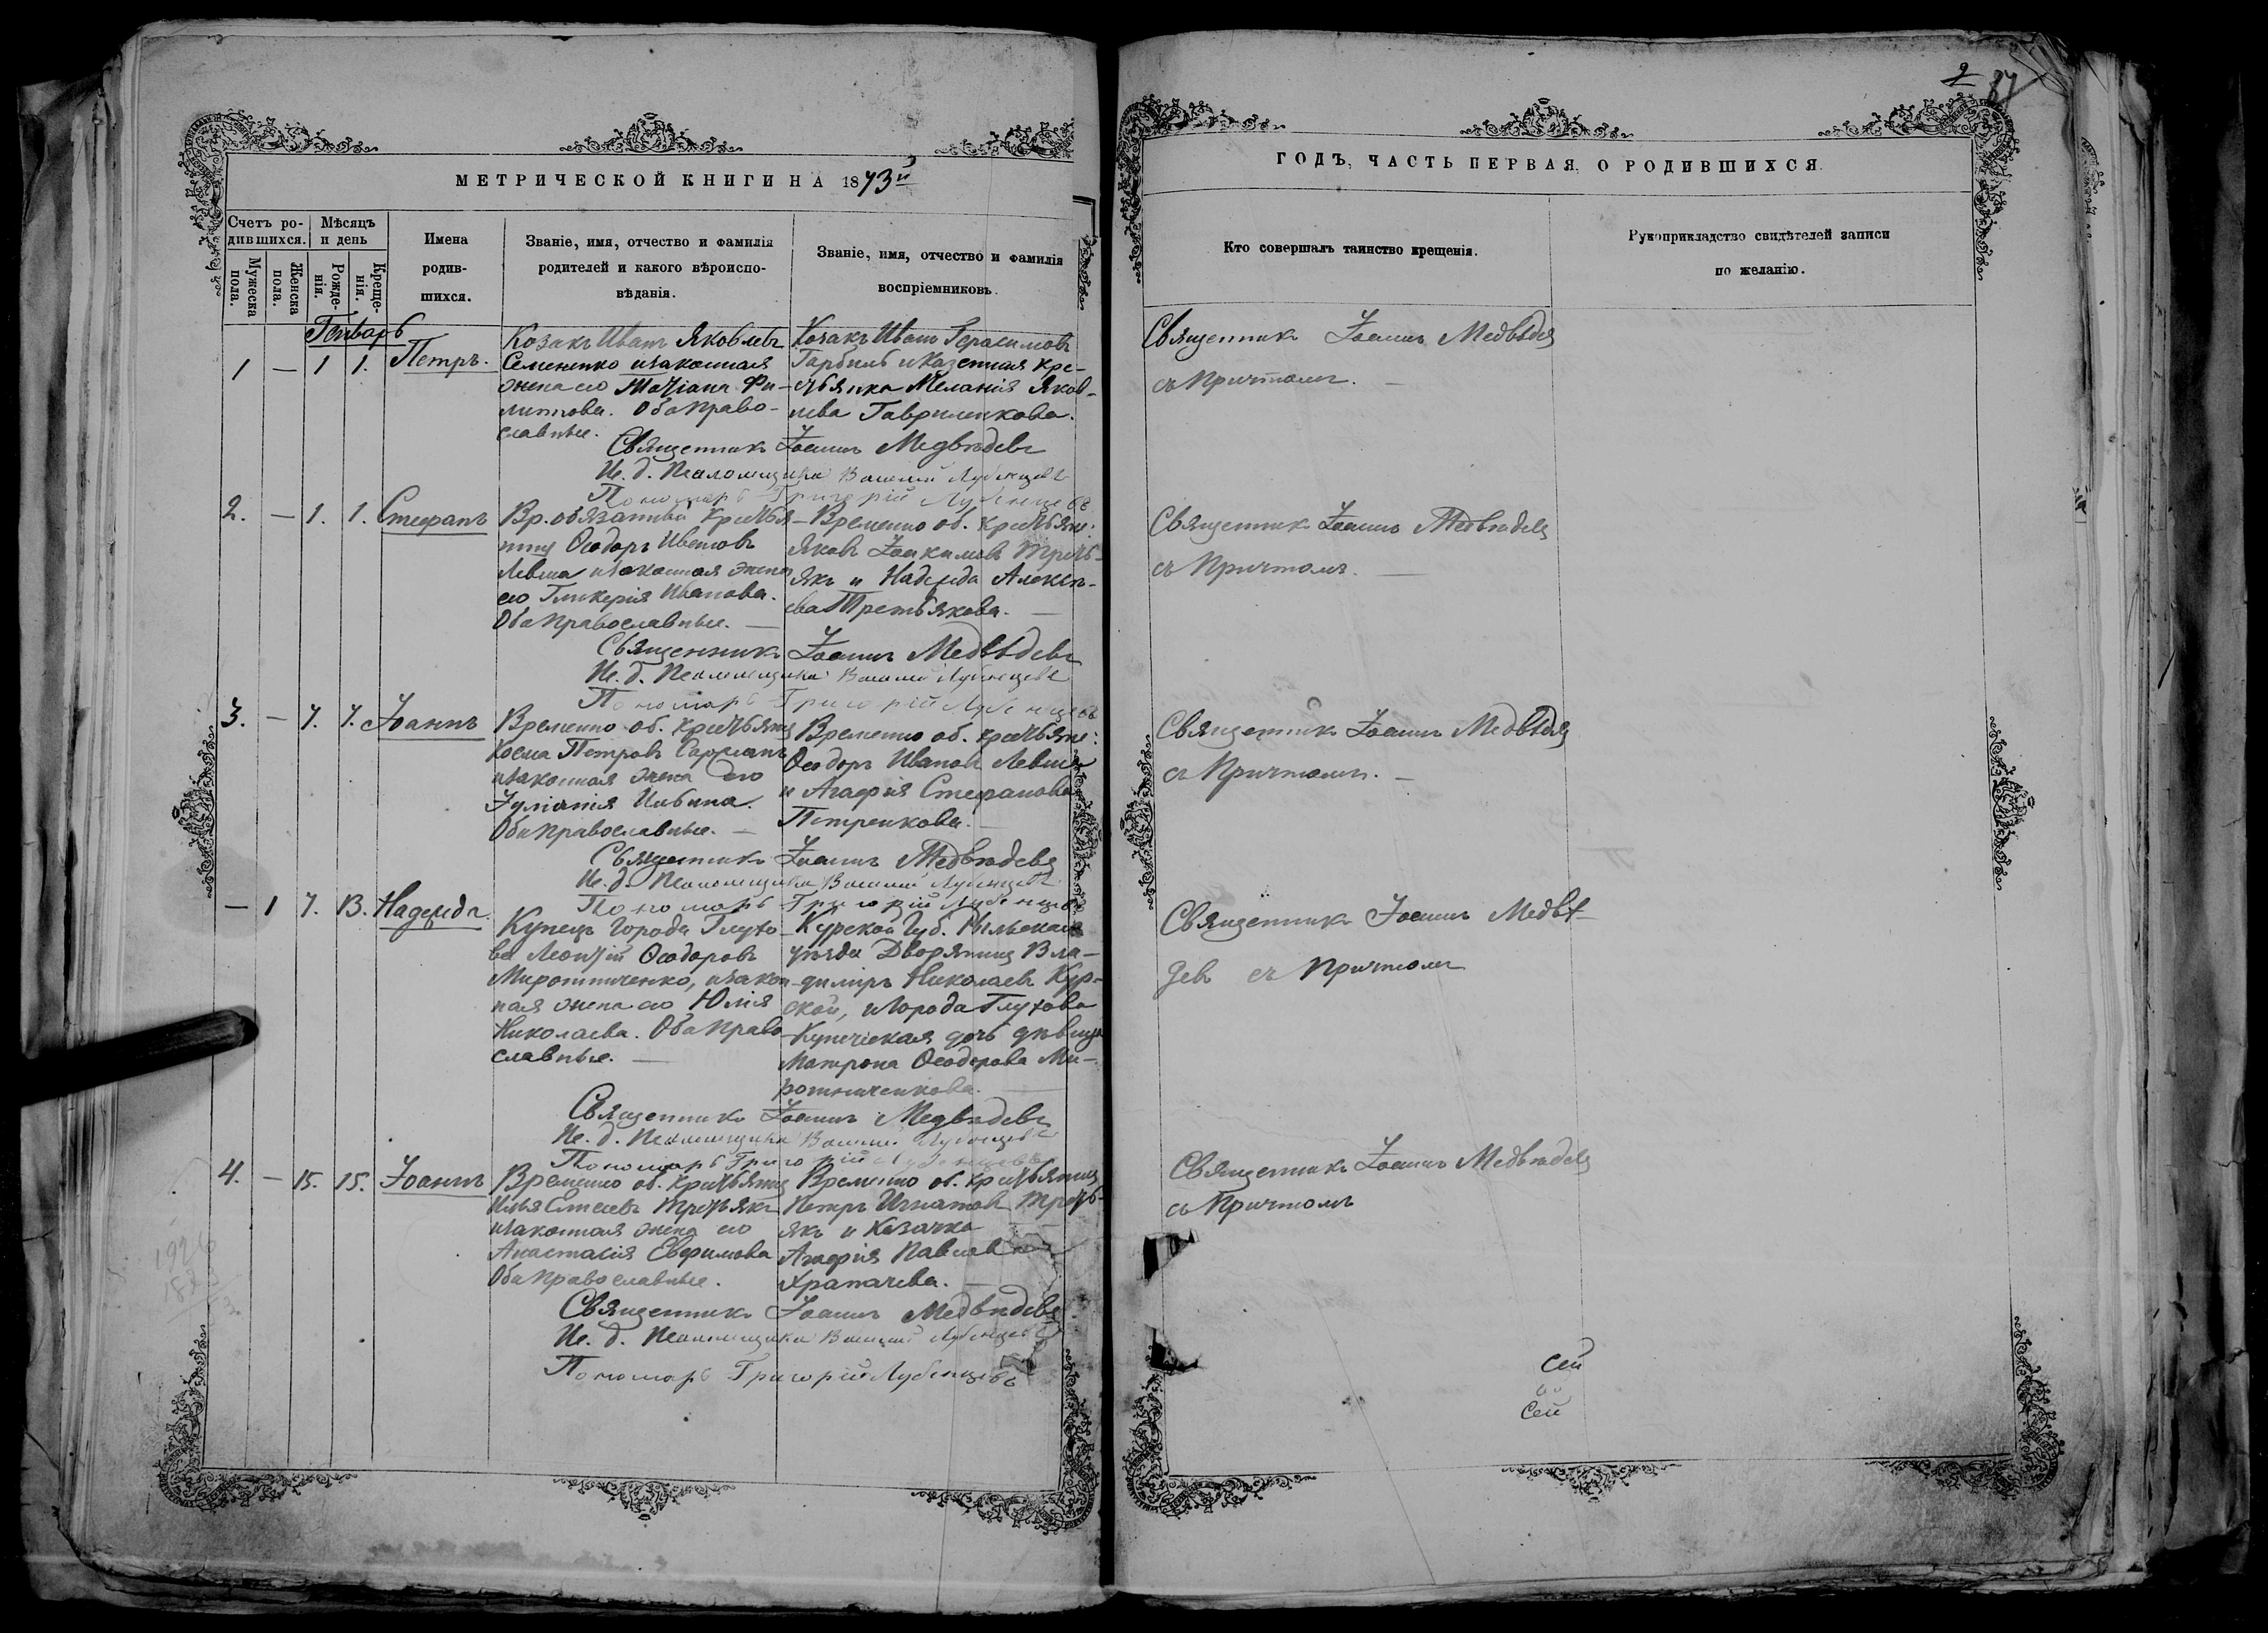 2
87
МЕТРИЧЕСКОЙ КНИГИ НА 1873й
ГОДЪ, ЧАСТЬ ПЕРВАЯ, О РОДИВШИХСЯ.
Счетъ ро-
дившихся.
Мѣсяцъ
и день
Мужеска
пола.
Женска
пола.
Рожде-
нія.
Креще-
нія.
Имена
родив-
шихся.
Званіе, имя, отчество и фамилія
родителей и какого вѣроиспо-
вѣданія.
Званіе, имя, отчество и фамилія
воспріемниковъ.
Кто совершалъ таинство крещенія.
Рукоприкладство свидѣтелей записи
по желанію.
Генварь
1 — 1 1. Петръ.
Козакъ Иванъ Яковлевъ
Семененко изаконная
жена его Татіана Фи-
липпова. Оба право-
славные.
Козакъ Иванъ Герасимовъ
иКазенная кре-
стьянка Меланія Яков-
лева Гавриленкова.
Священникъ Іоаннъ Медвѣдевъ
съ Причтомъ. —
Священникъ Іоаннъ Медвѣдевъ
И. д. Псаломщика Василій Лубенцевъ
Пономарь Григорій Лубенцевъ
2. — 1. 1. Стефанъ
Вр. обязатный крестья-
нинъ Ѳеодоръ Ивановъ
Левша изаконная жена
его Гликерія Иванова.
Оба Православные. —
Временно об. крестьяне:
Яковъ Іоакимовъ Треть-
якъ и Надежда Алексѣ-
ева Третьякова. —
Священникъ Іоаннъ Медвѣдевъ
съ Причтомъ. —
Священникъ Іоаннъ Медвѣдевъ
И. д. Псаломщика Василій Лубенцевъ
Пономарь Григорій Лубенцевъ
3. — 7. 7. Іоаннъ
Временно об. крестьянинъ
Косма Петровъ
изаконная жена его
Іуліанія
Оба православные. —
Временно об. крестьяне:
Ѳеодоръ Ивановъ Левша
и Агафія Стефанова
Петренкова. —
Священникъ Іоаннъ Медвѣдевъ
съ Причтомъ. —
Священникъ Іоаннъ Медвѣдевъ
И. д. Псаломщика Василій Лубенцевъ
Пономарь Григорій Лубенцевъ
— 1 7. 13. Надежда.
Купецъ города Глухо-
ва Леонтій Ѳеодоровъ
Мирошниченко, изакон-
ная жена его Юлія
Николаева. Оба Право-
славные. —
Курской Губ. Рыльскаго
уѣзда Дворянинъ Вла-
диміръ Николаевъ Кур-
ской, иГорода Глухова
Купеческая дочь дѣвица
Матрона Ѳеодорова Ми-
рошниченкова. —
Священникъ Іоаннъ Медвѣ-
девъ съ Причтомъ
Священникъ Іоаннъ Медвѣдевъ
И. д. Псаломщика Василій Лубенцевъ
Пономарь Григорій Лубенцевъ
4. — 15. 15. Іоаннъ
Временно об. крестьянинъ
Илья Третьякъ
изаконная жена его
Анастасія Евфимова
Оба Православные.
Временно об. крестьянинъ
Петръ Игнатовъ Треть-
якъ и Казачка
Агафія Павлова
Храпачева. —
Священникъ Іоаннъ Медвѣдевъ
съ Причтомъ
Священникъ Іоаннъ Медвѣдевъ
И. д. Псаломщика Василій Лубенцевъ
Пономарь Григорій Лубенцевъ
сей
сей